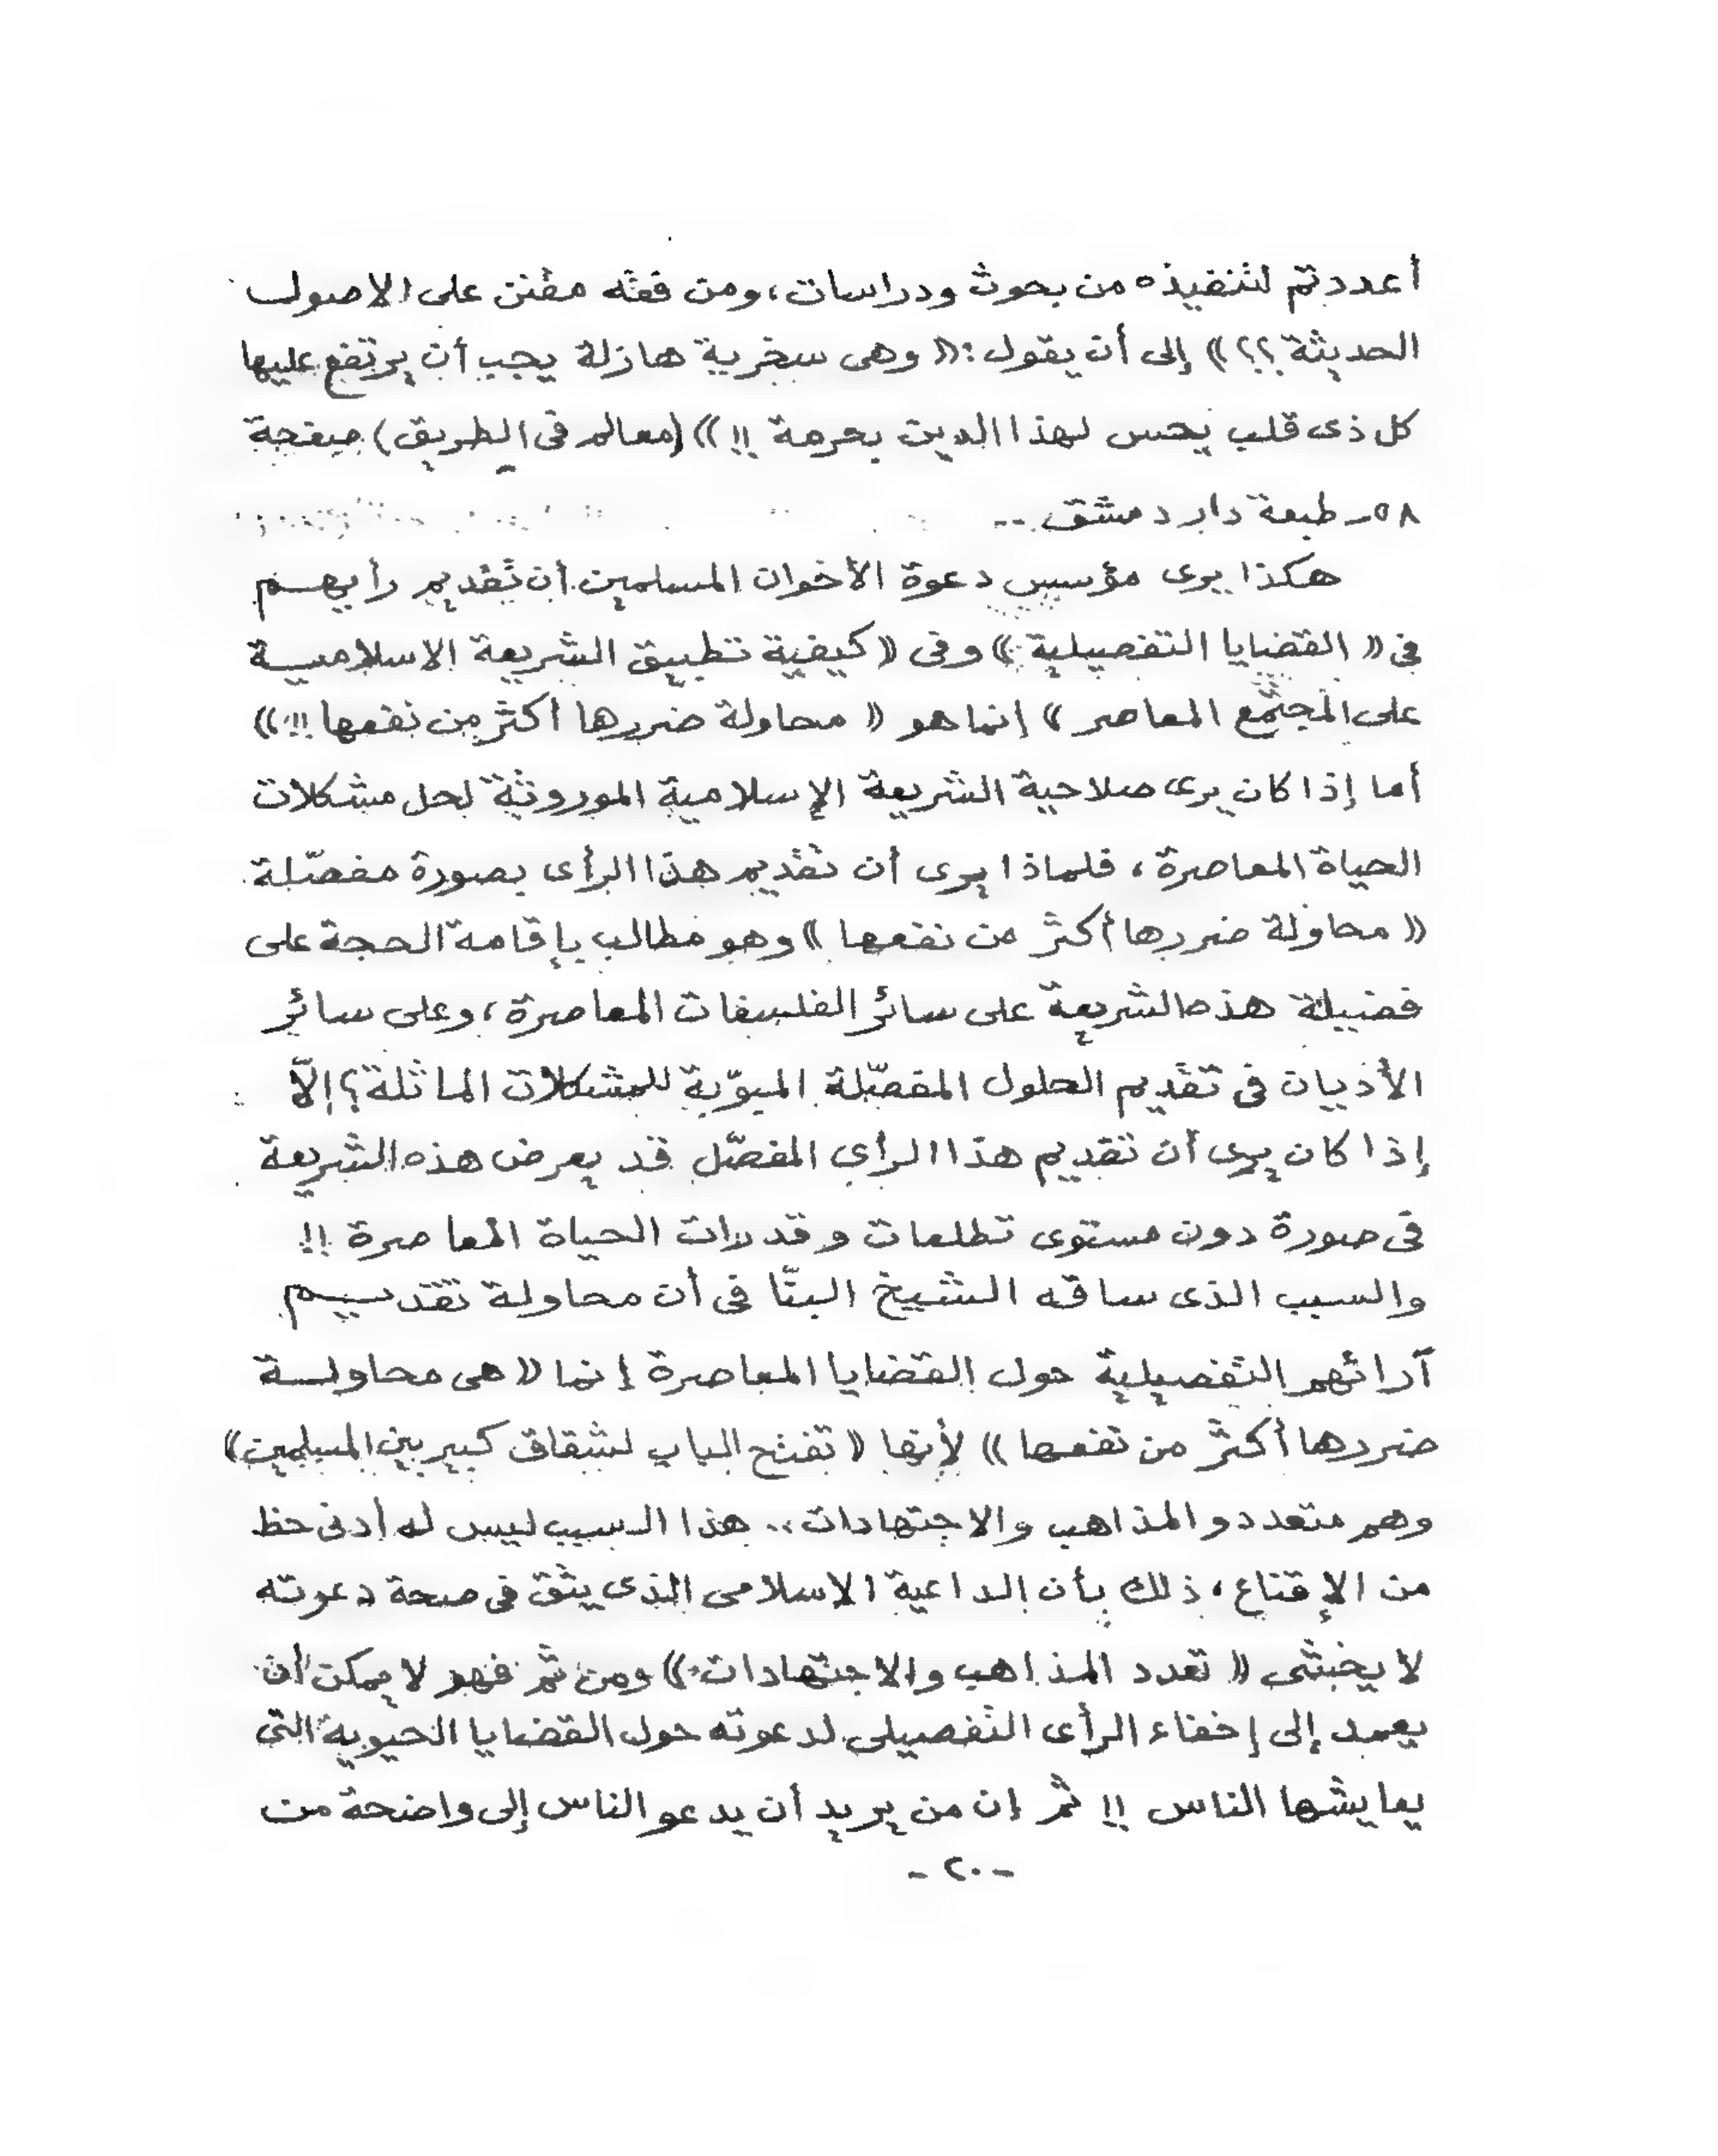 أعددتم لتنفيذه من بحوث ودراسات، ومن فقه مقنن على الاصول
الحديثة ؟؟ )) إلى أن يقول : (( وهى سخرية هازلة يجب أن يرتفع عليها
كل ذى قلب يحس لهذا الدين بحرمة !! )) (معالم فى الطريق) صفحة
٥٨ - طبعة دار دمشق ..
هكذا يرى مؤسس دعوة الأخوان المسلمين أن تقديم رأيهم
فى (( القضايا التفصيلية )) وفى (( كيفية تطبيق الشريعة الاسلامية
على المجتمع المعاصر )) إنما هو (( محاولة ضررها أكثر من نفعها !! ))
أما إذا كان يرى صلاحية الشريعة الإسلامية الموروثة لحل مشكلات
الحياة المعاصرة ، فلماذا يرى أن تقديم هذا الرأى بصورة مفصّلة
(( محاولة ضررها أكثر من نفعها )) وهو مطالب بإقامة الحجة على
فضيلة هذه الشريعة على سائر الفلسفات المعاصرة ، وعلى سائر
الأديان فى تقديم الحلول المفصّلة المبوّبة للمشكلات الماثلة ؟ إلاّ
إذا كان يرى أن تقديم هذا الرأى المفصّل قد يعرض هذه الشريعة
فى صورة دون مستوى تطلعات وقدرات الحياة المعاصرة !!
والسبب الذى ساقه الشيخ البنّا فى أن محاولة تقديم
آرائهم التفصيلية حول القضايا المعاصرة إنما (( هى محاولة
ضررها أكثر من نفعها )) لأنها (( تفتح الباب لشقاق كبير بين المسلمين ))
وهم متعددو المذاهب والاجتهادات .. هذا السبب ليس له أدنى حظ
من الإقناع ، ذلك بأن الداعية الاسلامى الذى يثق فى صحة دعوته
لا يخشى (( تعدد المذاهب والاجتهادات )) ومن ثم فهو لا يمكن أن
يعمد إلى إخفاء الرأى التفصيلى لدعوته حول القضايا الحيوية التى
يعايشها الناس !! ثم إن من يريد أن يدعو الناس إلى واضحة من
- ٢٠ -